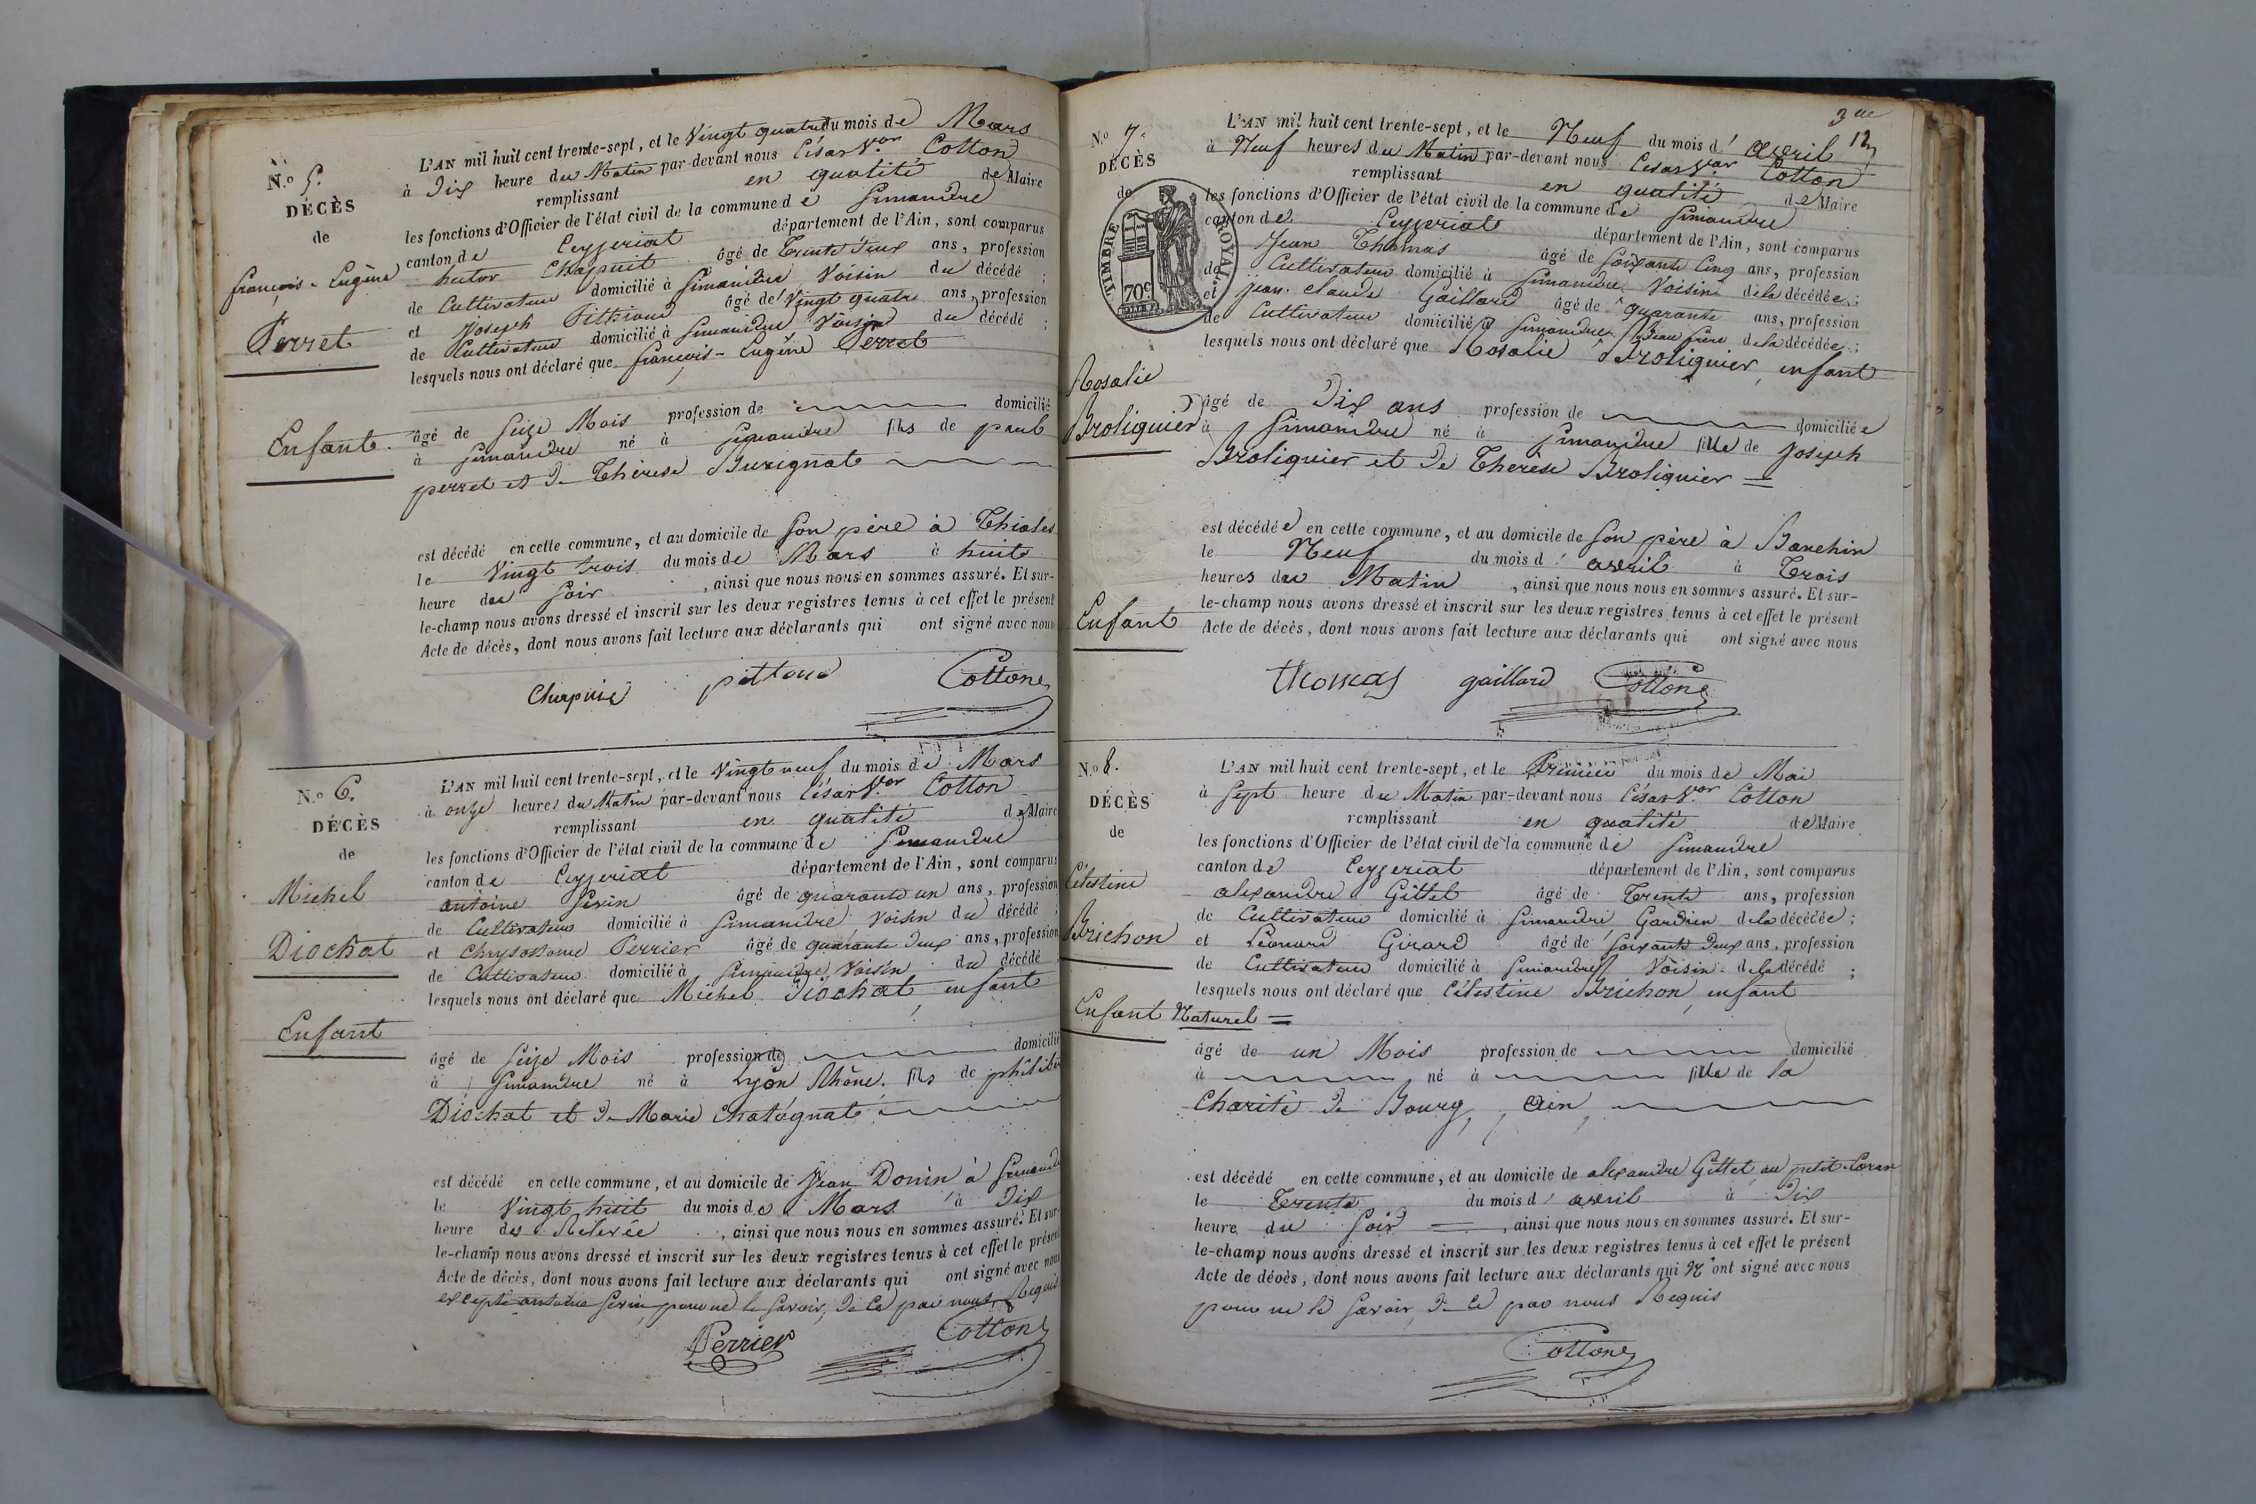 N.o 5.
DÉCÈS
de
françois-Eugène
Perret
Enfant.
L'AN mil huit cent trente-sept, et le Vingt quatre du mois de Mars
à Dix heure du Matin par-devant nous César V.or Cotton
remplissant en qualité de Maire
les fonctions d'Officier de l'état civil de la commune de Simandre
canton de Ceyzeriat département de l'Ain, sont comparus
hector Chapuit âgé de Trente deux ans, profession
de Cultivateur domicilié à Simandre Voisin du décédé ;
et Joseph Pittiout âgé de Vingt quatre ans, profession
de Cultivateur domicilié à Simandre, Voisin du décédé ;
lesquels nous ont déclaré que françois-Eugène Perret
âgé de Seize Mois profession de domicilié
à Simandre né à Simandre fils de paul
perret et de Thérese Buzignat
est décédé en cette commune, et au domicile de Son père à Thioles
le Vingt trois du mois de Mars à huit
heure du Soir , ainsi que nous nous en sommes assuré. Et sur-
le-champ nous avons dressé et inscrit sur les deux registres tenus à cet effet le présent
Acte de décès, dont nous avons fait lecture aux déclarants qui ont signé avec nous
Chapuis Cotton
N.o 6.
DÉCÈS
de
Michel
Diochat
Enfant
L'AN mil huit cent trente-sept, et le Vingt neuf du mois de Mars
à onze heures du Matin par-devant nous César V.or Cotton
remplissant en qualité de Maire
les fonctions d'Officier de l'état civil de la commune de Simandre
canton de Ceyzeriat département de l'Ain, sont comparus
antoine Sevin âgé de quarante un ans, profession
de Cultivateur domicilié à Simandre, Voisin du décédé ;
et Chrysostome Perrier âgé de quarante deux ans, profession
de Cultivateur domicilié à Simandre, Voisin du décédé
lesquels nous ont déclaré que Michel Diochat, enfant
âgé de Seize Mois profession de domicilié
à Simandre né à Lyon Rhône. fils de philibe
Diochat et de Marie Chatagnat
est décédé en cette commune, et au domicile de Jean Donin à Simand
le Vingt huit du mois de Mars à Dix
heure de Relevée , ainsi que nous nous en sommes assuré. Et sur-
le-champ nous avons dressé et inscrit sur les deux registres tenus à cet effet le présent
Acte de décès, dont nous avons fait lecture aux déclarants qui ont signé avec nous
excepté antoine Sevin, pour ne le Savoir, de ce par nous Requis
Perrier Cotton
3me
12
N.o 7.
DÉCÈS
de
TIMBRE ROYAL
70c
Rosalie
Broliquier
Enfant
L'AN mil huit cent trente-sept, et le Neuf du mois d' avril
à Neuf heures du Matin par-devant nous César V.or Cotton
remplissant en qualité de Maire
les fonctions d'Officier de l'état civil de la commune de Simandre
canton de Ceyzeriat département de l'Ain, sont comparus
Jean Thomas âgé de Soixante Cinq ans, profession
de Cultivateur domicilié à Simandre, Voisin de la décédée ;
et jean-claude Gaillard âgé de quarante ans, profession
de Cultivateur domicilié à Simandre, Beau frère de la décédée ;
lesquels nous ont déclaré que Rosalie Broliquier, enfant
âgé de Dix ans profession de domiciliée
à Simandre né à Simandre fille de Joseph
Broliquier et de Therèse Broliquier =
est décédée en cette commune, et au domicile de Son père à Banchin
le Neuf du mois d' avril à Trois
heures du Matin , ainsi que nous nous en sommes assuré. Et sur-
le-champ nous avons dressé et inscrit sur les deux registres tenus à cet effet le présent
Acte de décès, dont nous avons fait lecture aux déclarants qui ont signé avec nous
thomas gaillard Cotton
N.o 8.
DÉCÈS
de
Célestine
Brichon
Enfant Naturel =
L'AN mil huit cent trente-sept, et le Premier du mois de Mai
à Sept heure du Matin par-devant nous César V.or Cotton
remplissant en qualité de Maire
les fonctions d'Officier de l'état civil de la commune de Simandre
canton de Ceyzeriat département de l'Ain, sont comparus
alexandre Gittet âgé de Trente ans, profession
de Cultivateur domicilié à Simandre Gardien de la décédée ;
et Léonard Girard âgé de Soixante deux ans, profession
de Cultivateur domicilié à Simandre, Voisin de la décédé ;
lesquels nous ont déclaré que Célestine Brichon, enfant
âgé de un Mois profession de domicilié
à né à fille de la
Charité de Bourg, Ain
est décédé en cette commune, et au domicile de alexandre Gittet, au petit-Coran
le Trente du mois d' avril à Dix
heure du Soir = , ainsi que nous nous en sommes assuré. Et sur-
le-champ nous avons dressé et inscrit sur les deux registres tenus à cet effet le présent
Acte de décès, dont nous avons fait lecture aux déclarants qui N'ont signé avec nous
pour ne le Savoir, de ce par nous Requis
Cotton